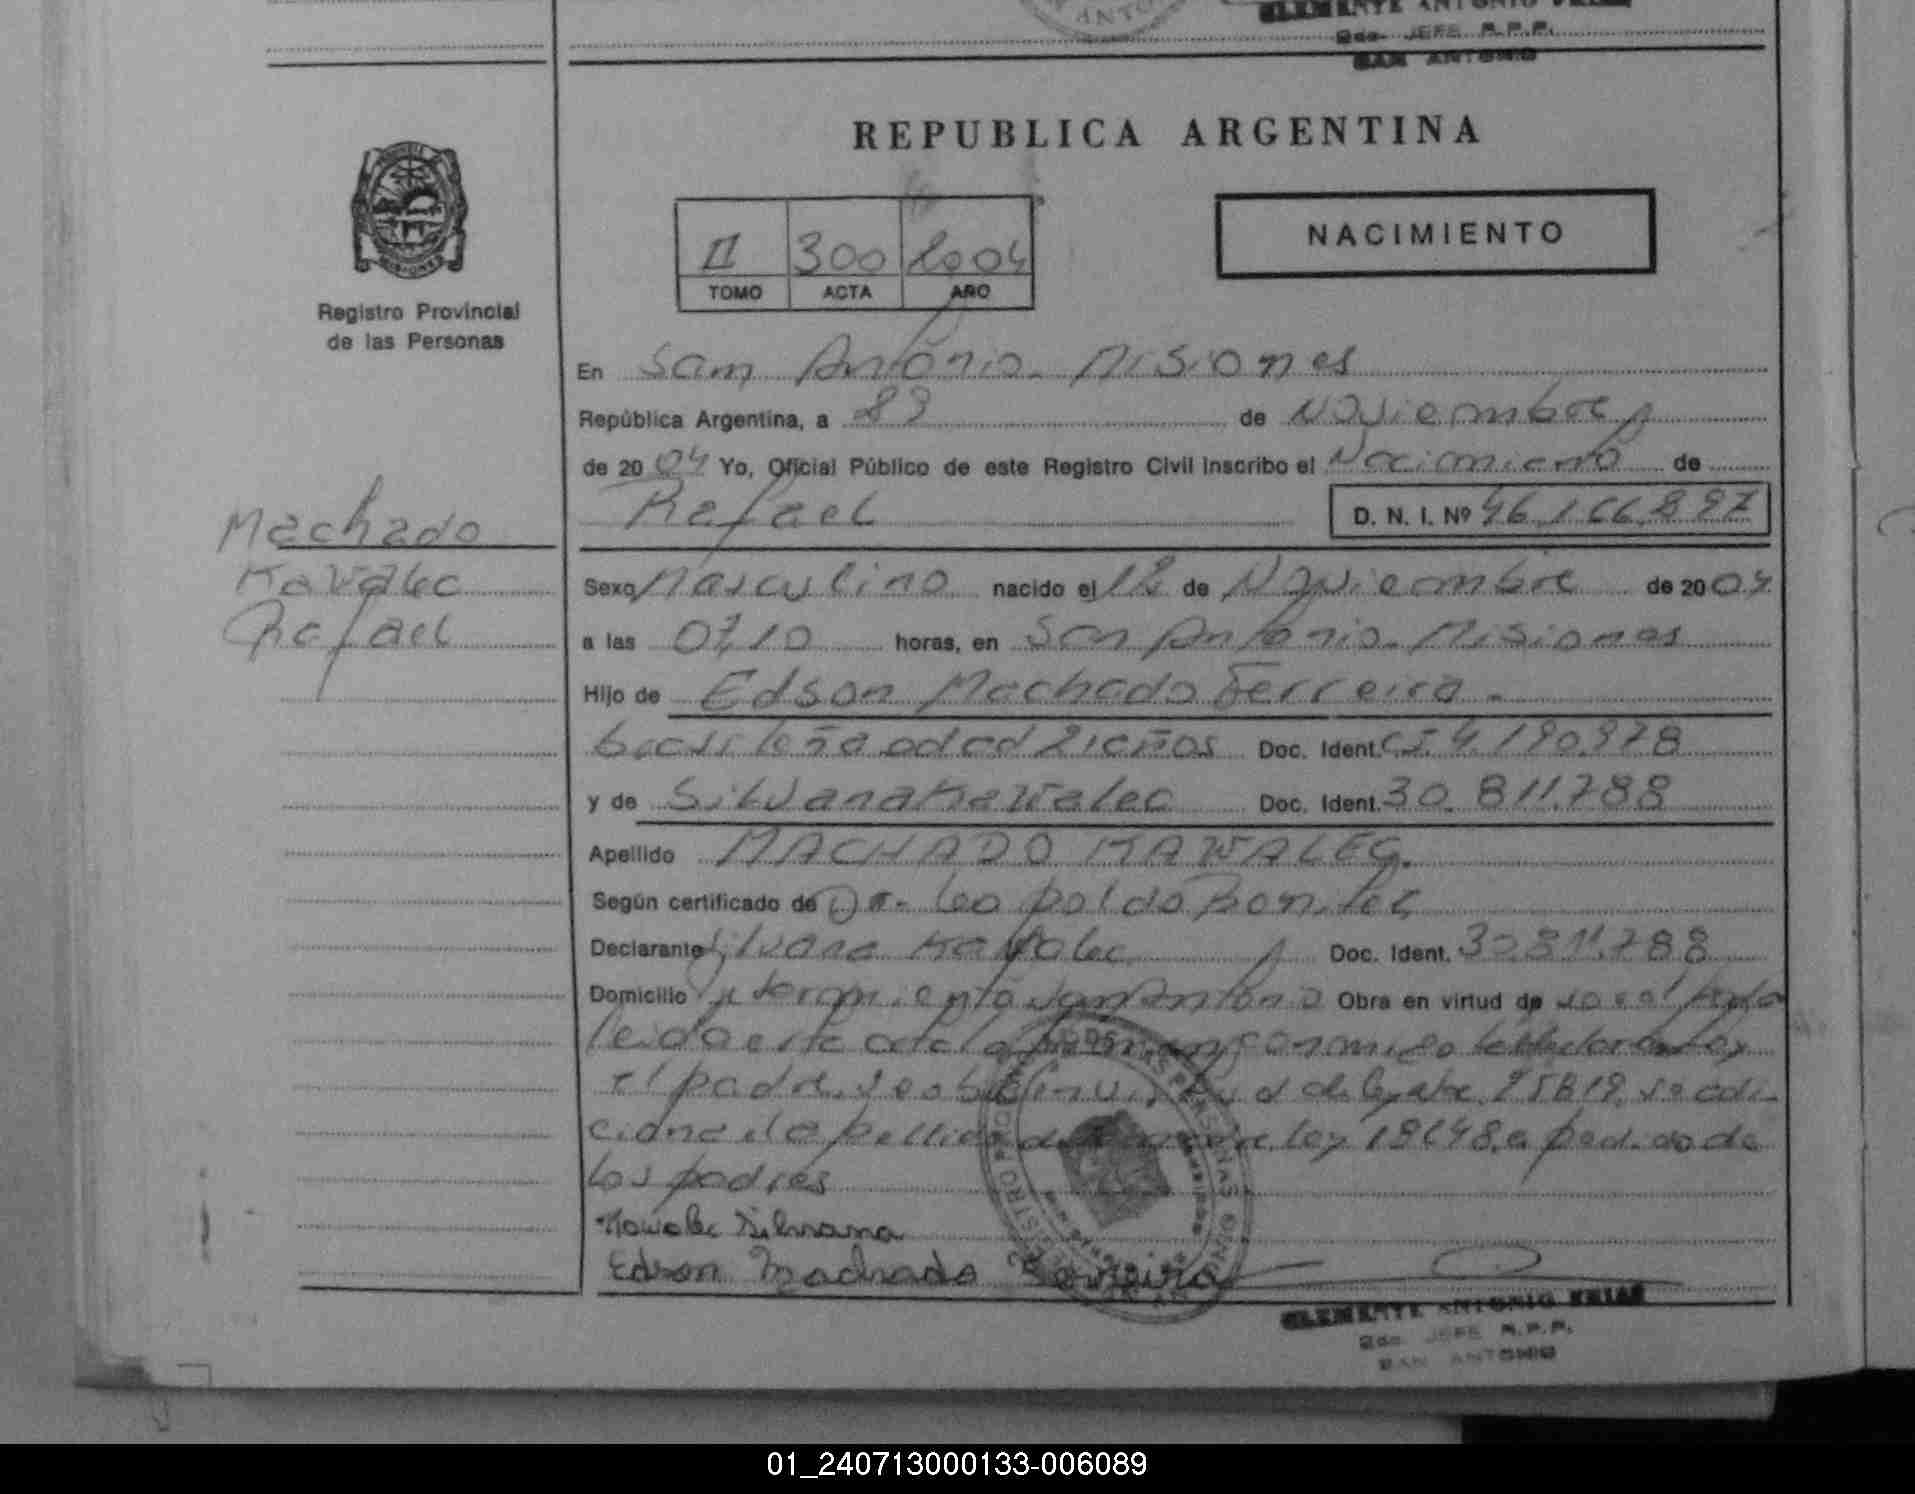 CLEMENTE ANTONIO
2do. JEFE R.P.P.
SAN ANTONIO
REPUBLICA ARGENTINA
NACIMIENTO
II 300 2004
TOMO ACTA AÑO
Registro Provincial
de las Personas
En San Antonio - Misiones
República Argentina, a de Noviembre
de 2004 Yo, Oficial Público de este Registro Civil Inscribo el Nacimiento de
Rafael D. N. I. Nº 46.166.897
Machado
Kavalec
Rafael
Sexo Masculino nacido el 12 de Noviembre de 2004
a las 07,10 horas, en San Antonio - Misiones
Hijo de Edson Machado Ferreira -
brasileña edad 21 años Doc. Ident. C.I. 4.190.978
y de Silvana Kawalec Doc. Ident. 30.811.788
Apellido MACHADO KAWALEC.
Según certificado de Dr. Leopoldo Benitez
Declarante Silvana Kawalec Doc. Ident. 30.811.788
Domicilio San Antonio Obra en virtud de
leida esta acta la conmigo la declarante y
el padre. Se ley 25819. Se adi-
ciona el apellido ley 18248 a pedido de
los padres
Kawalec Silvana
Edson Machado Ferreira
CLEMENTE ANTONIO
2do. JEFE R.P.P.
SAN ANTONIO
01_240713000133-006089